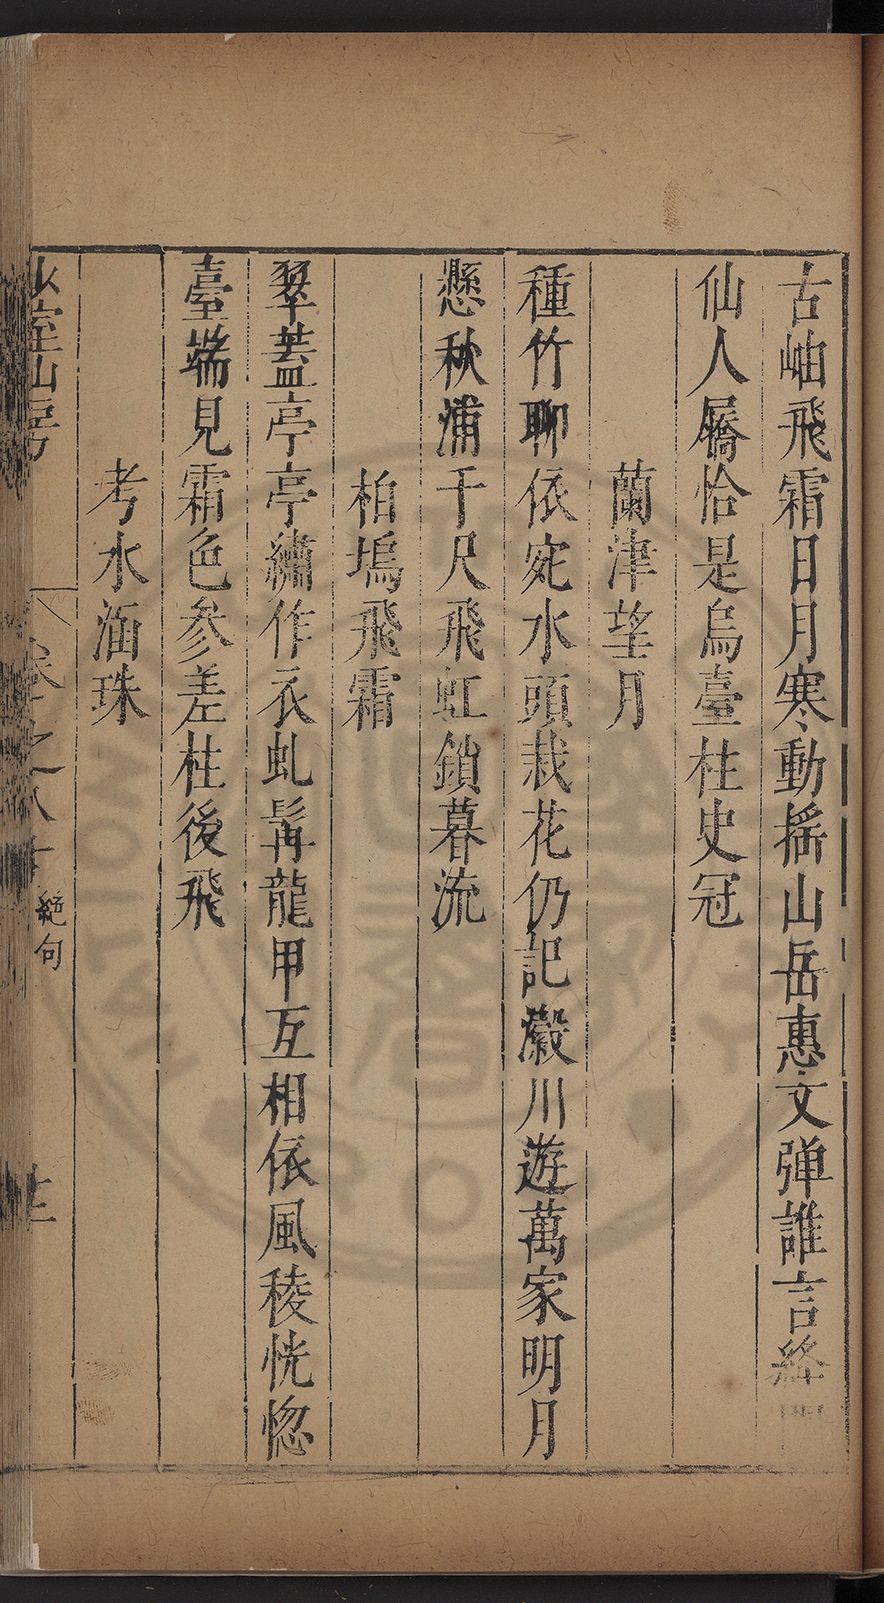 古岫飛霜日月寒動搖山岳惠文弹誰言絳
仙人屩恰是烏臺柱史冠
蘭津望月
種竹聊依宛水頭栽花仍記瀫川遊萬家明月
懸秋浦千尺飛虹鎖暮流
柏塢飛霜
翠蓋亭亭繡作衣虬髯龍甲互相依風稜恍惚
臺端見霜色參差柱後飛
考水涵珠
少室山房
卷之八十
絕句